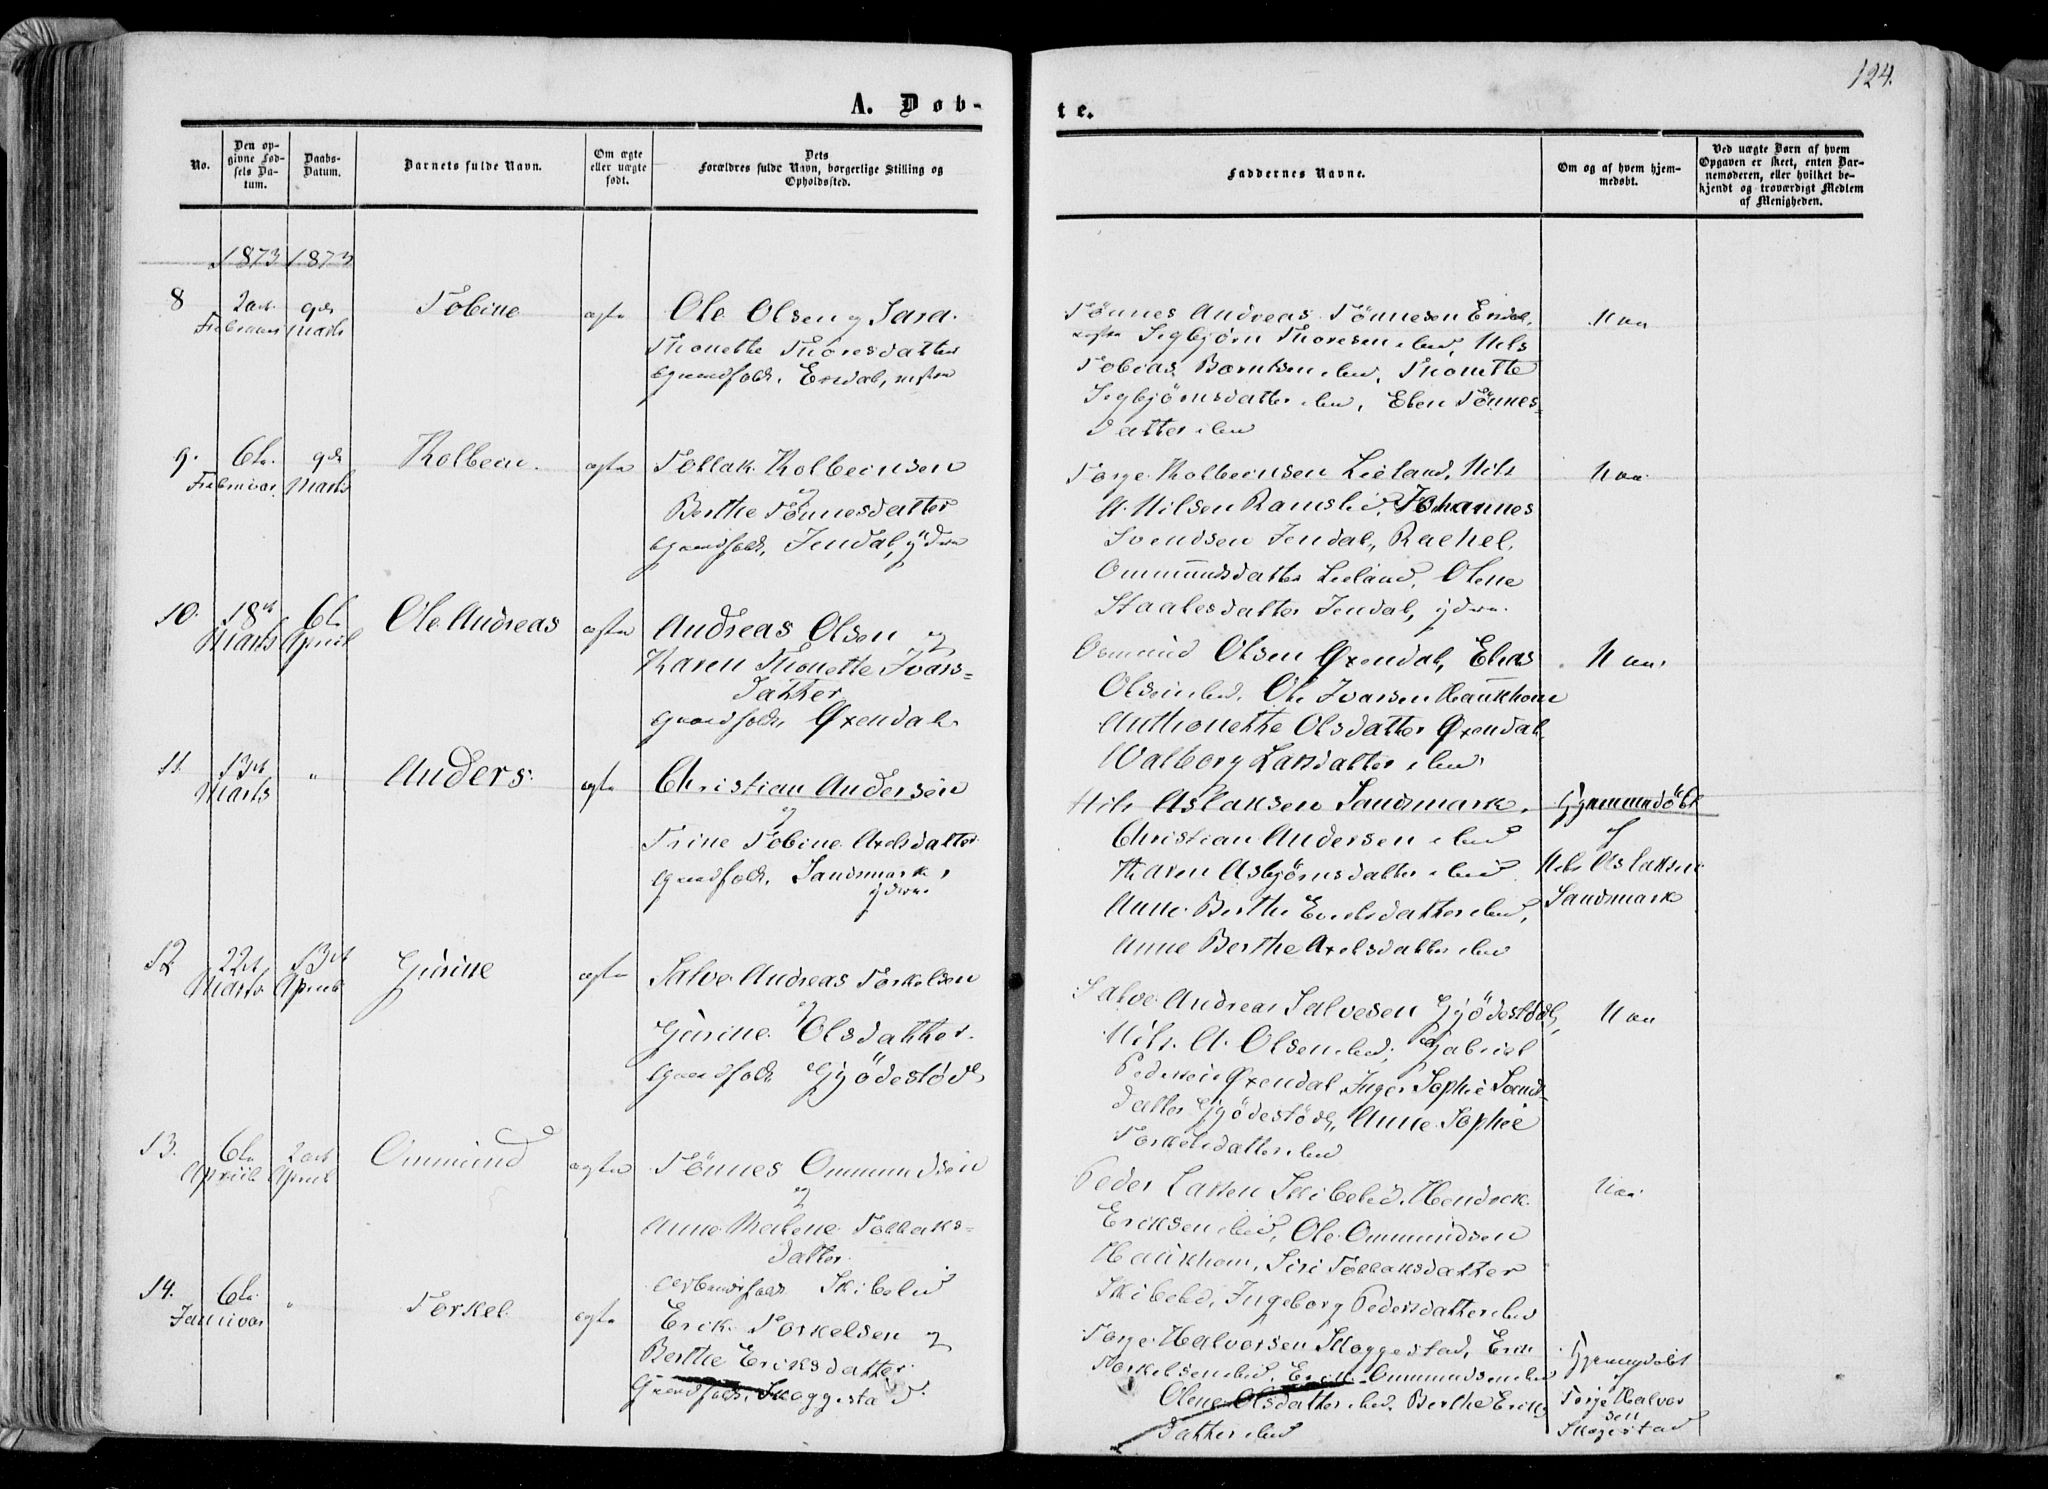 124.
A. Døb-
te.
No.
Den op-
givne Fød-
sels Da-
tum.
Daabs-
Datum.
Barnets fulde Navn.
Om ægte
eller uægte
født.
Dets
Forældres fulde Navn, borgerlige Stilling og
Opholdssted.
Faddernes Navne.
Om og af hvem hjem-
medøbt.
Ved uægte Børn af hvem
Opgaven er skeet, enten Bar-
nemoderen, eller hvilket be-
kjendt og troværdigt Medlem
af Menigheden.
1873 1873
8
Februar
Marts
Tobine
ægte
Ole Olsen og Sara
Thonette Thoresdatter
Gaardfolk, Eridal,
Tønnes Andreas Tønnesen
Segbjørn Thoresen ibid, Nils
Tobias Berntsen ibid, Thonette
Segbjørnsdatter ibid, Elen Tønnes-
datter ibid
9.
6te
Februar
Marts
Kolbein.
ægte
Tollak Kolbeinsen
og
Berthe Tønnesdatter
Gaardfolk, Jendal, ydre
Torge Kolbeinsen Lieland, Nils
A. Nilsen Ramslid, Johannes
Svendsen Jendal, Rachel
Ommundsdatter Lieland, Olene
Staalesdatter Jendal, ydre.
10.
18de
Marts
6te
April
Ole Andreas
ægte
Andreas Olsen og
Karen Thonette Ivars-
datter
Gaardfolk, Øxendal
Osmund Olsen Øxendal, Elias
Olsen ibid, Ole Ivarsen Haukhom
Anthonette Olsdatter Øxendal,
Walborg Larsdatter ibid.
11.
13de
Marts
"
Anders.
ægte
Christian Andersen
og
Trine Tobine Axelsdatter
Gaardfolk, Sandsmark,
ydre
Nils Aslaksen Sandsmark,
Christian Andersen ibid
Karen Asbjørnsdatter ibid
Anne Berthe Erichsdatter ibid,
Anne Berthe Axelsdatter ibid
Hjemmedøbt
af
Nils Aslaksen
Sandsmark
12
22de
Marts
13de
April
Gurine
ægte
Salve Andreas Torkelsen
og
Gurine Olsdatter
Gaardfolk Gjødestøl
Salve Andreas Salvesen Gjødestøl,
Nils A. Olsen ibid, Gabriel
Pedersen Øxendal, Inger Sophie
datter Gjødestøl, Anne Sophie
Torkelsdatter ibid
13.
6te
April
20de
April
Ommund
ægte
Tønnes Ommundsen
og
Anne Malene Tollaks-
datter
Skibeled
Peder Larsen Skibeled, Hendrik
Eriksen ibid, Ole Ommundsen
Haukhom, Siri Tollaksdatter
Skibeled, Ingeborg Pedersdatter ibid
14.
6te
Januar
"
Torkel
ægte
Erik Torkelsen og
Berthe Eriksdatter
Gaardfolk, Skoggestad
Torge Halvorsen Skoggestad, Erik
Torkelsen ibid, Erik Ommundsen ibid
Olene Olsdatter ibid, Berthe Eriks-
datter ibid
Hjemmedøbt
af
Torge Halvor
sen
Skogestad